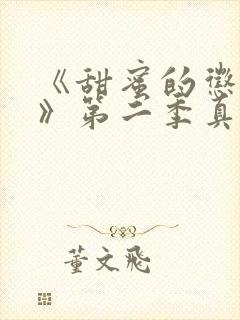 《甜蜜的惩
》第二季真
董文飛